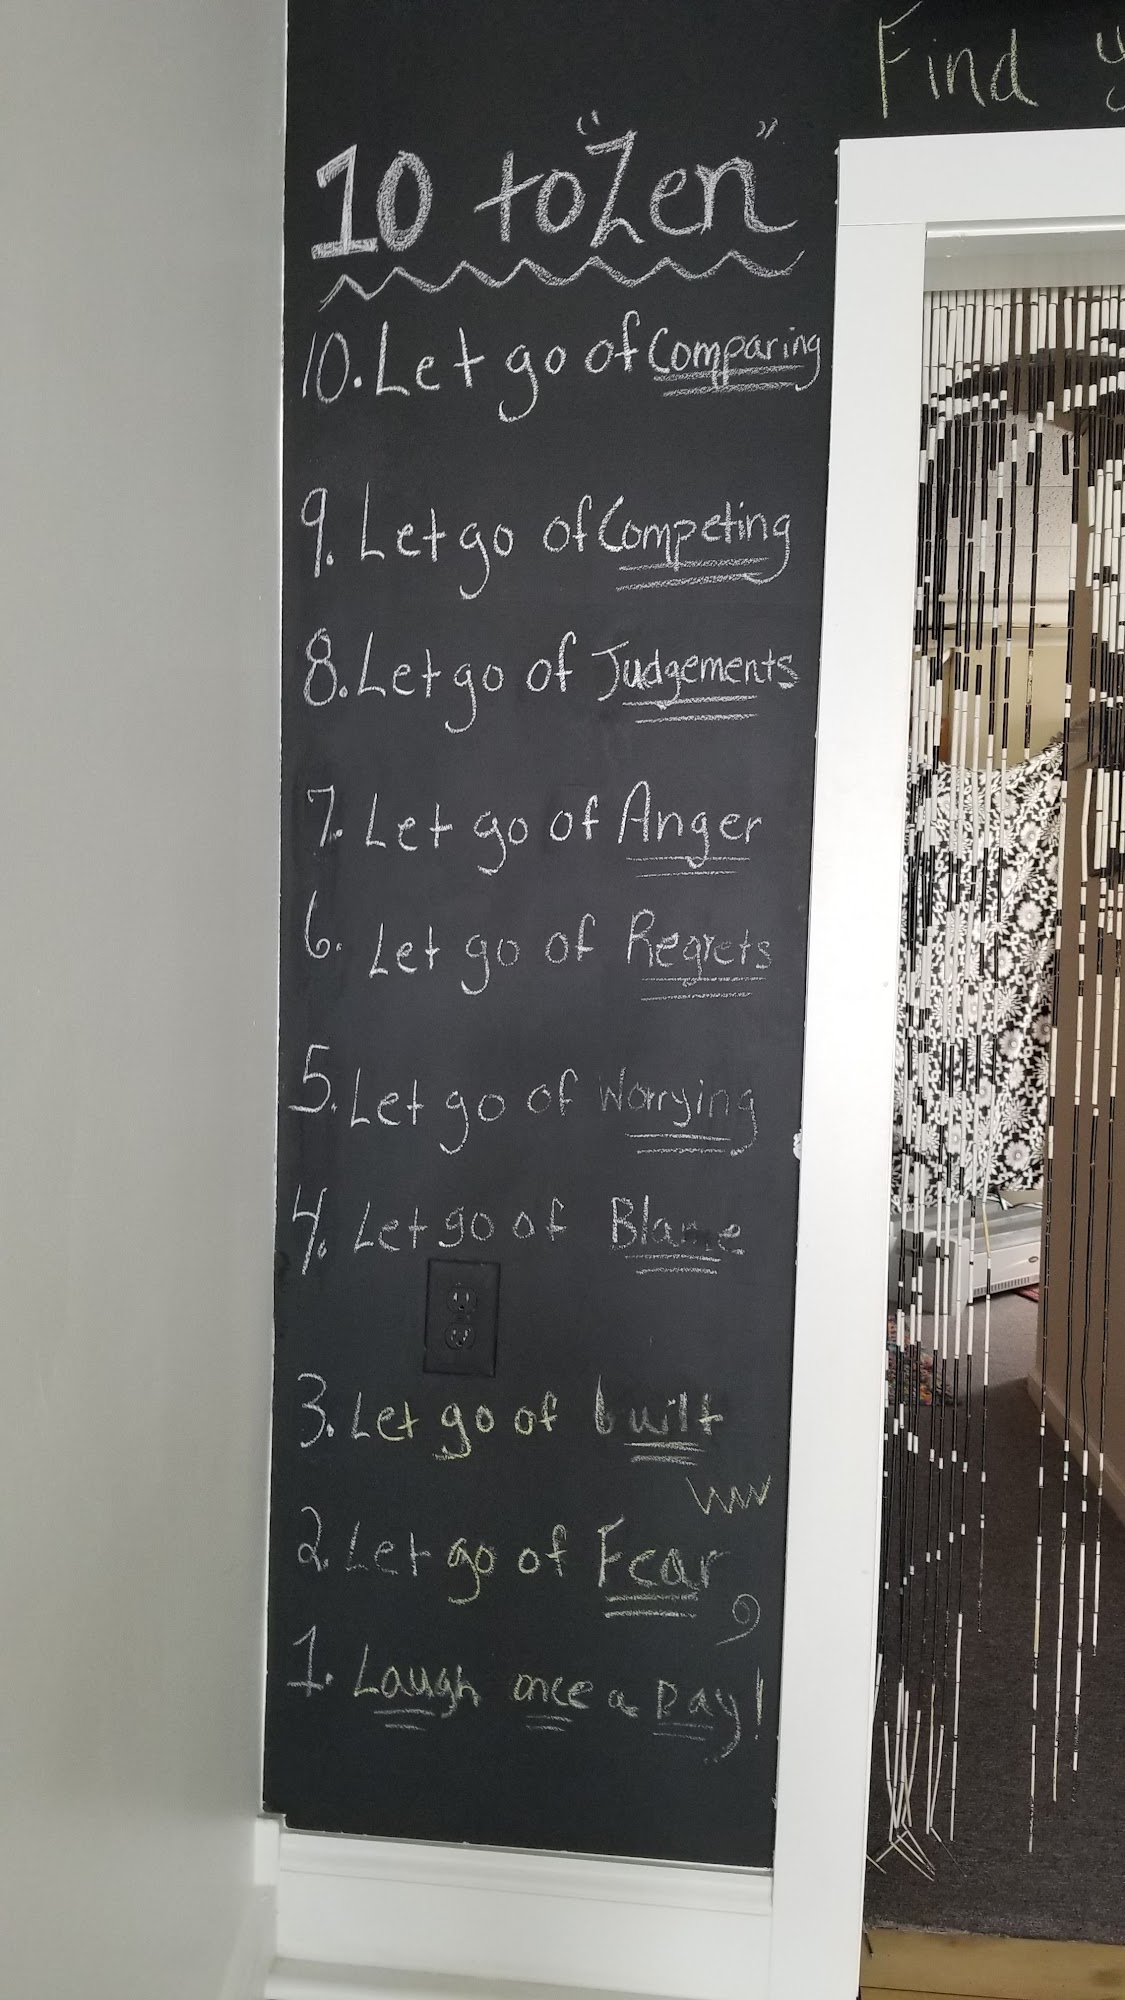 Find
10 to "Zen"
10. Let go of Comparing
9. Let go of Competing
8. Let go of Judgements
7. Let go of Anger
6. Let go of Regrets
5. Let go of Worrying
4. Let go of Blame
3. Let go of built
2. Let go of Fear
1. Laugh once a Day!